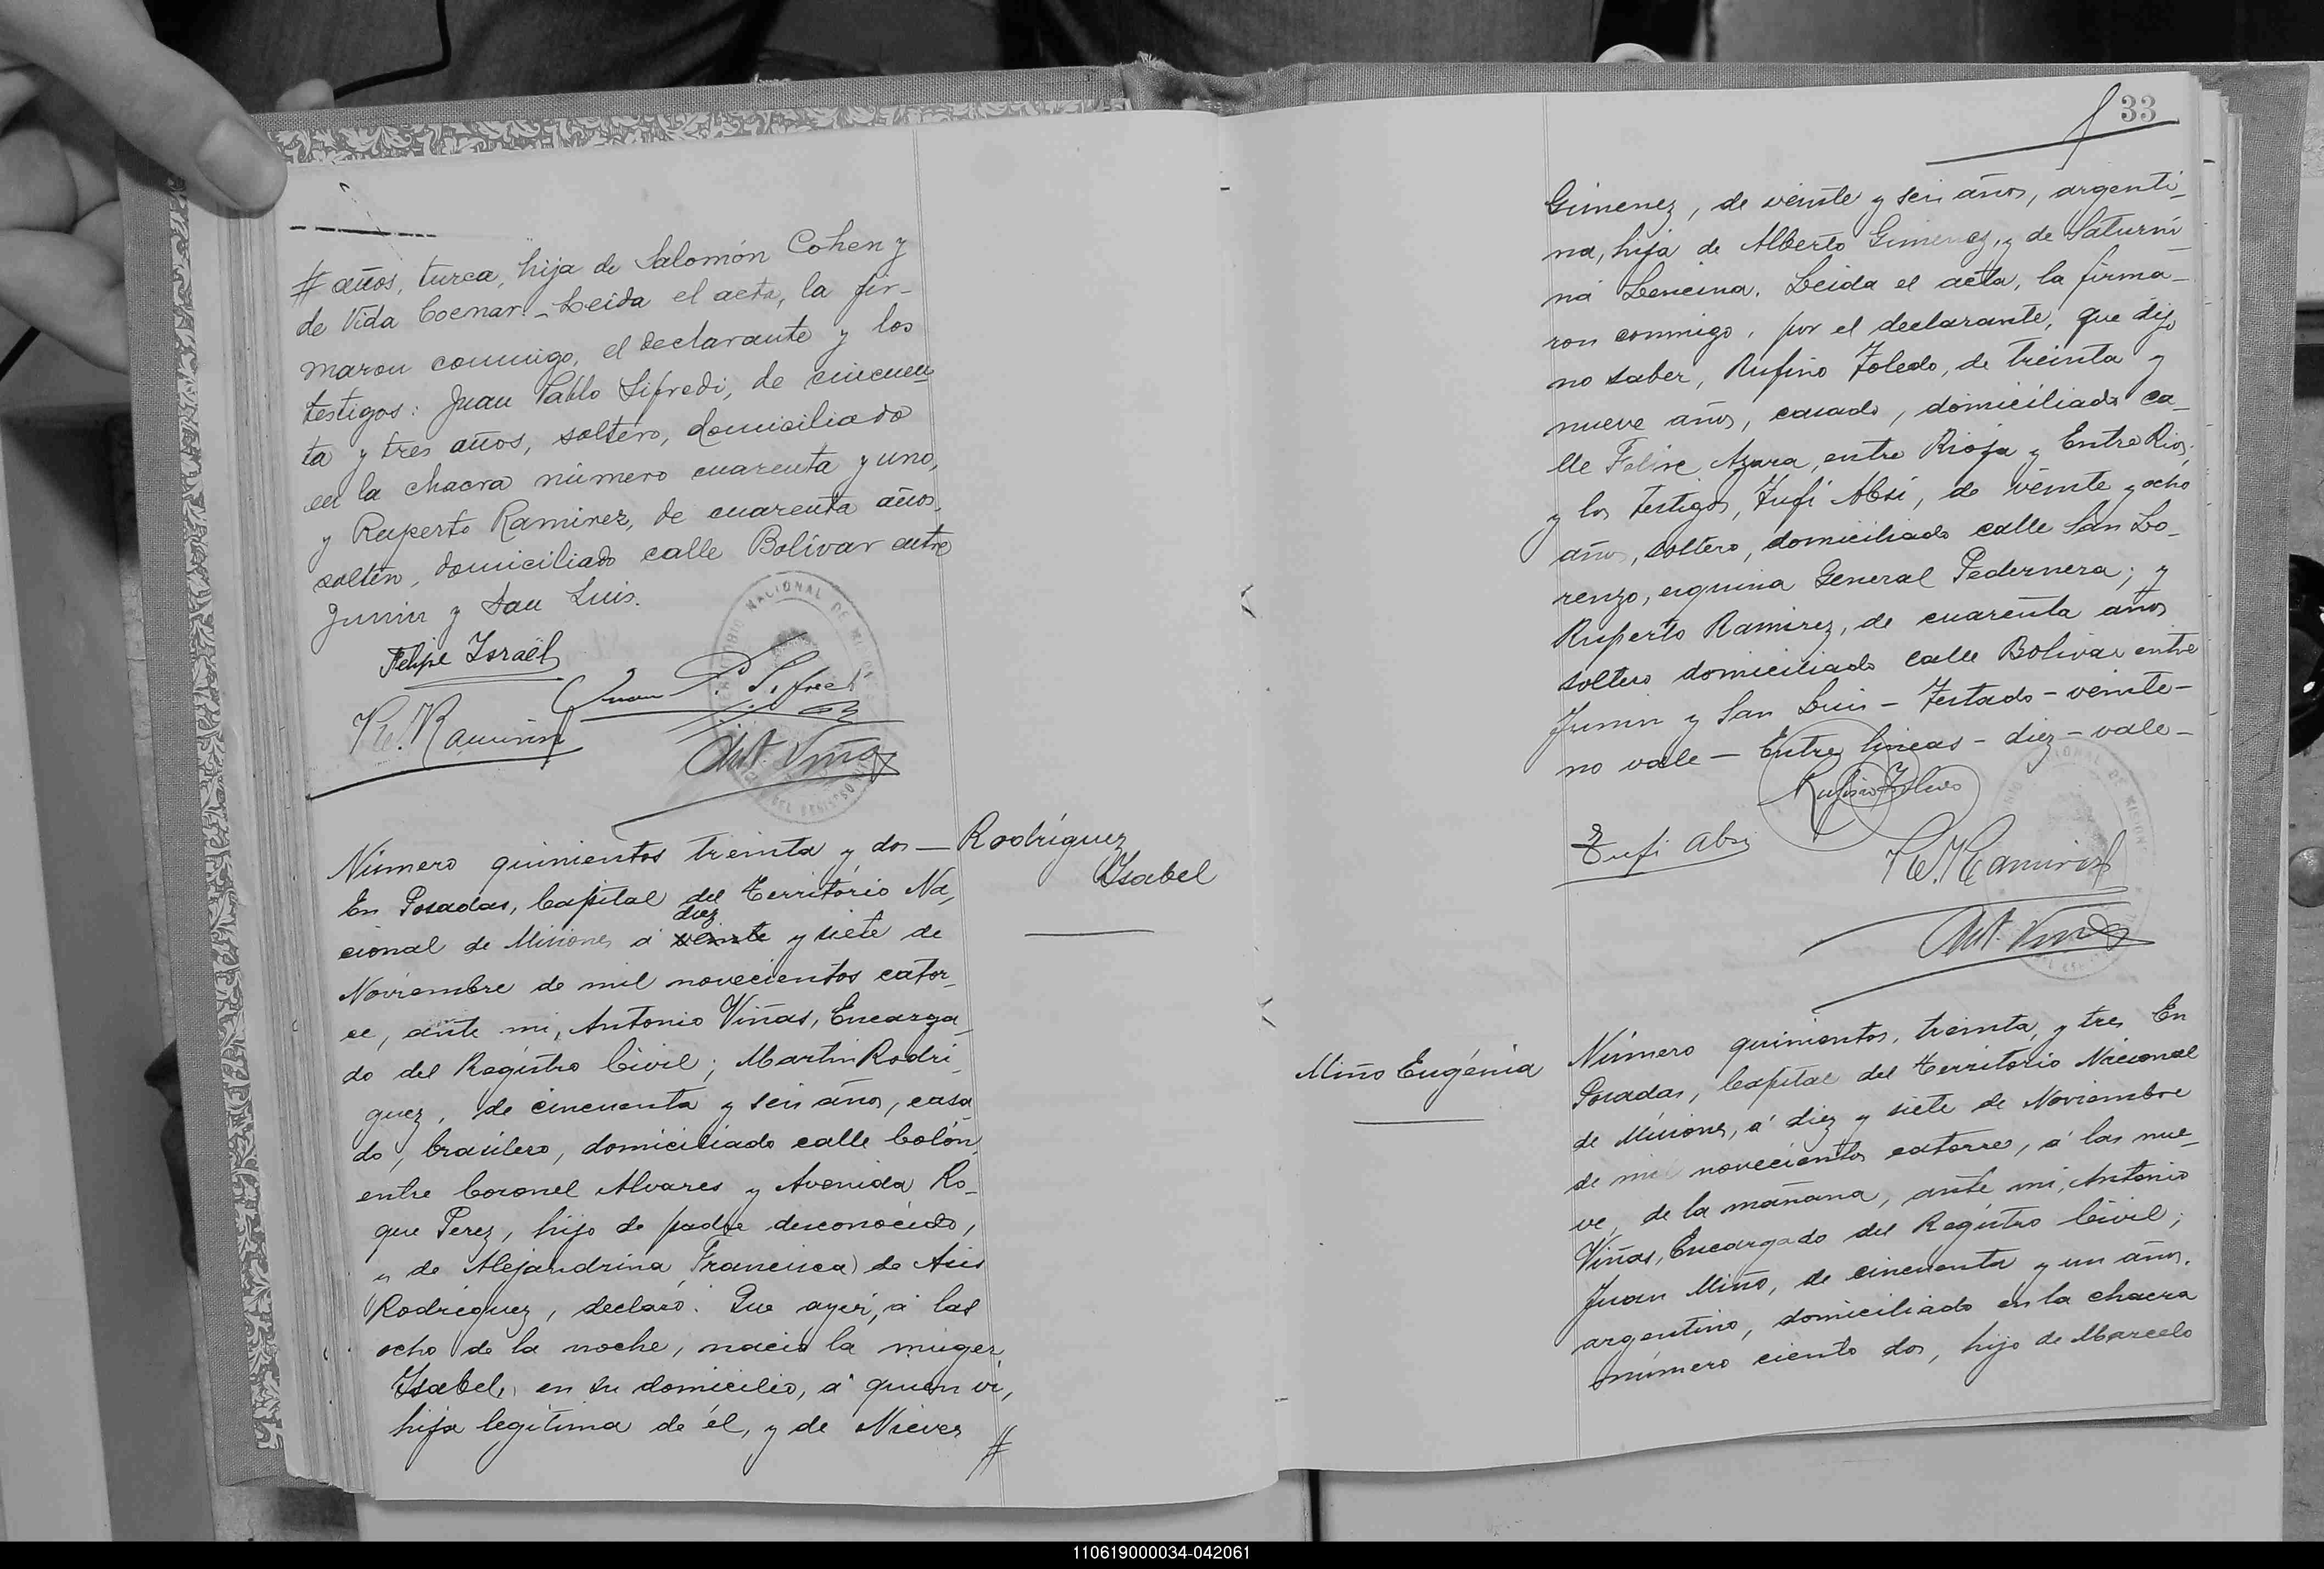 # años, turca, hija de Salomón Cohen y
de Vida Coenar.- Leida el acta, la fir-
maron conmigo, el declarante y los
testigos: Juan Pablo Sifredi, de cincuen
ta y tres años, soltero, domiciliado
en la chacra número cuarenta y uno,
y Ruperto Ramirez, de cuarenta años,
soltero, domiciliado calle Bolívar entre
Junin y San Luis.
Felipe Israël
Juan P. Sifredi
R. Ramirez
Ant. Viñas
Número quinientos treinta y dos —
Rodríguez
Isabel
En Posadas, Capital del Territorio Na,
diez
cional de Misiones á veinte y siete de
Noviembre de mil novecientos cator-
ce, ante mi, Antonio Viñas, Encarga-
do del Registro Civil; Martin Rodri-
guez, de cincuenta y seis años, casa-
do, brasilero, domiciliado calle Colón,
entre Coronel Alvares y Avenida Ro-
que Perez, hijo de padre desconocido,
y de Alejandrina Francisca de Asis
Rodriguez, declaró: Que ayer, á las
ocho de la noche, nació la muger
Isabel, en su domicilio, á quien vi,
hija legítima de él, y de Nieves #
33
Gimenez, de veinte y seis años, argenti-
na, hija de Alberto Gimenez, y de Saturni-
na Lencina. Leida el acta, la firma-
ron conmigo, por el declarante, que dijo
no saber, Rufino Toledo, de treinta y
nueve años, casado, domiciliado ca-
lle Felix Azara, entre Rioja y Entre Rios;
y los testigos, Tufi Absi, de veinte y ocho
años, soltero, domiciliado calle San Lo-
renzo, esquina General Pedernera; y
Ruperto Ramirez, de cuarenta años
soltero domiciliado calle Bolivar entre
Junin y San Luis - Testado - veinte -
no vale - Entre lineas - diez - vale -
Rufino Toledo
Tufi Absi
R. Ramirez
Ant. Viñas
Miño Eugénia
Número quinientos, treinta, y tres En
Posadas, Capital del Territorio Nacional
de Misiones, á diez y siete de Noviembre
de mil novecientos catorce, á las nue-
ve, de la mañana, ante mi, Antonio
Viñas, Encargado del Registro Civil;
Juan Miño, de cincuenta y un años,
argentino, domiciliado en la chacra
número ciento dos, hijo de Marcelo
110619000034-042061